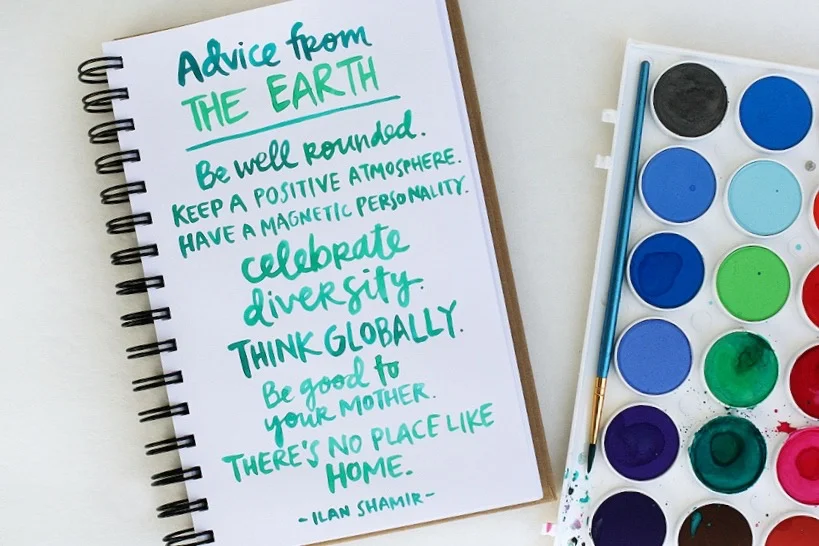 Advice from
THE EARTH
Be well rounded.
KEEP A POSITIVE ATMOSPHERE.
HAVE A MAGNETIC PERSONALITY.
celebrate
diversity.
THINK GLOBALLY.
Be good to
your MOTHER.
THERE'S NO PLACE LIKE
HOME.
- ILAN SHAMIR -